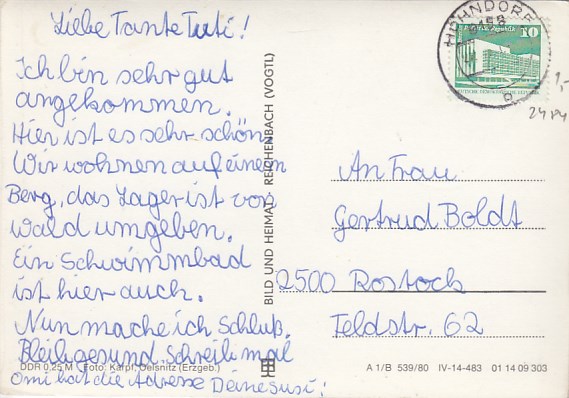 Liebe Tante Tuti!
Ich bin sehr gut
angekommen.
Hier ist es sehr schön
Wir wohnen auf einem
Berg, das Lager ist von
wald umgeben.
Ein Schwimmbad
ist hier auch.
Nun mache ich Schluß.
Bleib gesund. Schreib mal
Omi hat die Adresse Deine Susi!
DDR 0,25 M Foto: Karpf, Oelsnitz (Erzgeb.)
BILD UND HEIMAT REICHENBACH (VOGTL)
HOHNDORF
9156
10
1,-
24 P4
An Frau
Gertrud Boldt
2500 Rostock
Feldstr. 62
A 1/B 539/80 IV-14-483 01 14 09 303